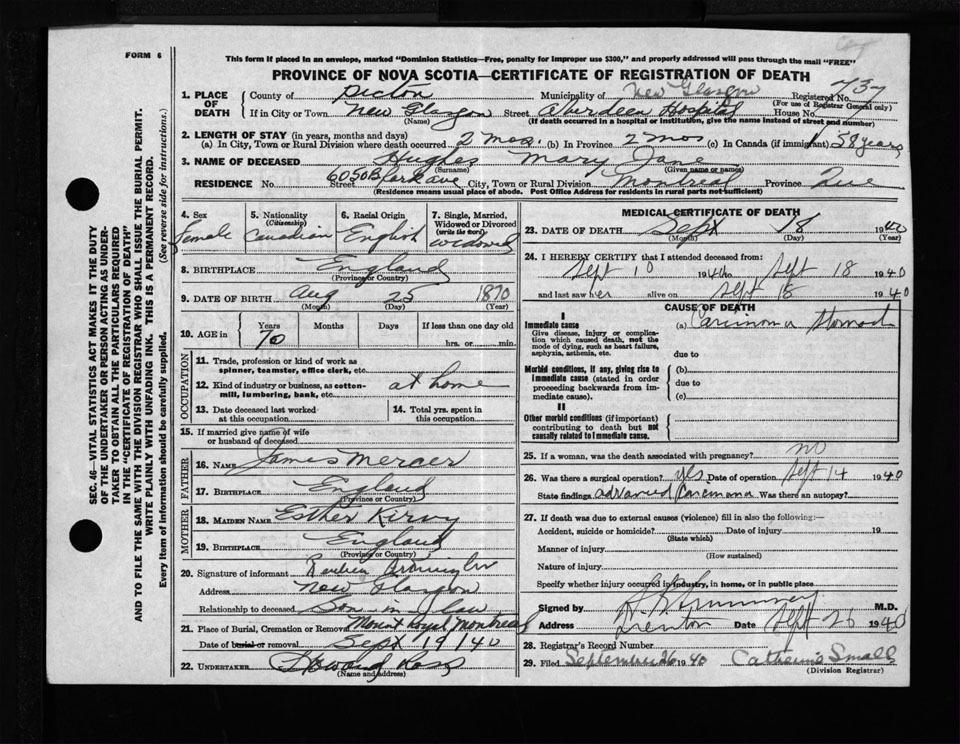 FORM 6
This form if placed in an envelope, marked "Dominion Statistics—Free, penalty for improper use $300," and properly addressed will pass through the mail "FREE"
PROVINCE OF NOVA SCOTIA—CERTIFICATE OF REGISTRATION OF DEATH
1. PLACE OF DEATH
County of Pictou Municipality of New Glasgow Registered No. 737
(For use of Registrar General only)
If in City or Town New Glasgow Street Aberdeen Hospital House No.
(Name) (If death occurred in a hospital or institution, give the name instead of street and number)
2. LENGTH OF STAY (in years, months and days)
(a) In City, Town or Rural Division where death occurred 2 mos. (b) In Province 2 mos (c) In Canada (if immigrant) 58 years
3. NAME OF DECEASED Hughes Mary Jane
(Surname) (Given name or names)
RESIDENCE No. 6050 Street Ave City, Town or Rural Division Montreal Province Que
(Residence means usual place of abode. Post Office Address for residents in rural parts not sufficient)
4. Sex
Female
5. Nationality
(Citizenship)
Canadian
6. Racial Origin
English
7. Single, Married, Widowed or Divorced
(write the word)
widowed
8. BIRTHPLACE England
(Province or Country)
9. DATE OF BIRTH Aug 25 1870
(Month) (Day) (Year)
10. AGE in
Years Months Days If less than one day old
70 hrs. or min.
OCCUPATION
11. Trade, profession or kind of work as spinner, teamster, office clerk, etc.
12. Kind of industry or business, as cotton-mill, lumbering, bank, etc. at home
13. Date deceased last worked at this occupation
14. Total yrs. spent in this occupation
15. If married give name of wife or husband of deceased
FATHER
16. NAME James Mercer
17. BIRTHPLACE England
(Province or Country)
MOTHER
18. MAIDEN NAME Esther
19. BIRTHPLACE England
(Province or Country)
20. Signature of informant
Address New Glasgow
Relationship to deceased Son-in-law
21. Place of Burial, Cremation or Removal Mount Royal Montreal
Date of burial or removal Sept 19 1940
22. UNDERTAKER Howard
(Name and address)
MEDICAL CERTIFICATE OF DEATH
23. DATE OF DEATH Sept 18 1940
(Month) (Day) (Year)
24. I HEREBY CERTIFY that I attended deceased from:
Sept 10 1940 to Sept 18 1940
and last saw her alive on Sept 18 1940
CAUSE OF DEATH
I
Immediate cause
Give disease, injury or complication which caused death, not the mode of dying, such as heart failure, asphyxia, asthenia, etc.
(a) Carcinoma Stomach
due to
Morbid conditions, if any, giving rise to immediate cause (stated in order proceeding backwards from immediate cause).
(b)
due to
(c)
II
Other morbid conditions (if important) contributing to death but not causally related to immediate cause.
25. If a woman, was the death associated with pregnancy? no
26. Was there a surgical operation? yes Date of operation Sept 14 1940
State findings advanced Carcinoma Was there an autopsy?
27. If death was due to external causes (violence) fill in also the following:—
Accident, suicide or homicide? Date of injury 19
(State which)
Manner of injury
(How sustained)
Nature of injury
Specify whether injury occurred in industry, in home, or in public place
Signed by M.D.
Address Trenton Date Sept 26 1940
28. Registrar's Record Number
29. Filed September 26 1940 Catherine Small
(Division Registrar)
SEC. 46—VITAL STATISTICS ACT MAKES IT THE DUTY
OF THE UNDERTAKER OR PERSON ACTING AS UNDER-
TAKER TO OBTAIN ALL THE PARTICULARS REQUIRED
IN THE "CERTIFICATE OF REGISTRATION OF DEATH"
AND TO FILE THE SAME WITH THE DIVISION REGISTRAR WHO SHALL ISSUE THE BURIAL PERMIT.
WRITE PLAINLY WITH UNFADING INK. THIS IS A PERMANENT RECORD.
Every item of information should be carefully supplied. (See reverse side for instructions.)